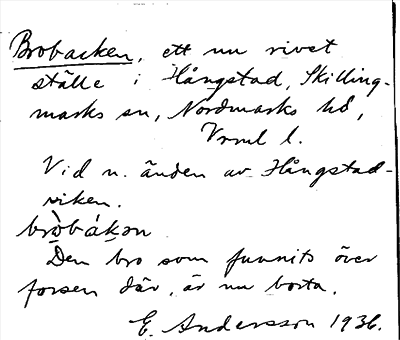 Brobacken, ett nu rivet
ställe i Hångstad, Skilling-
marks sn, Nordmarks hd,
Vrml l.
Vid n. änden av Hångstad-
viken.
Den bro som funnits över
forsen där, är nu borta.
E. Andersson 1936.